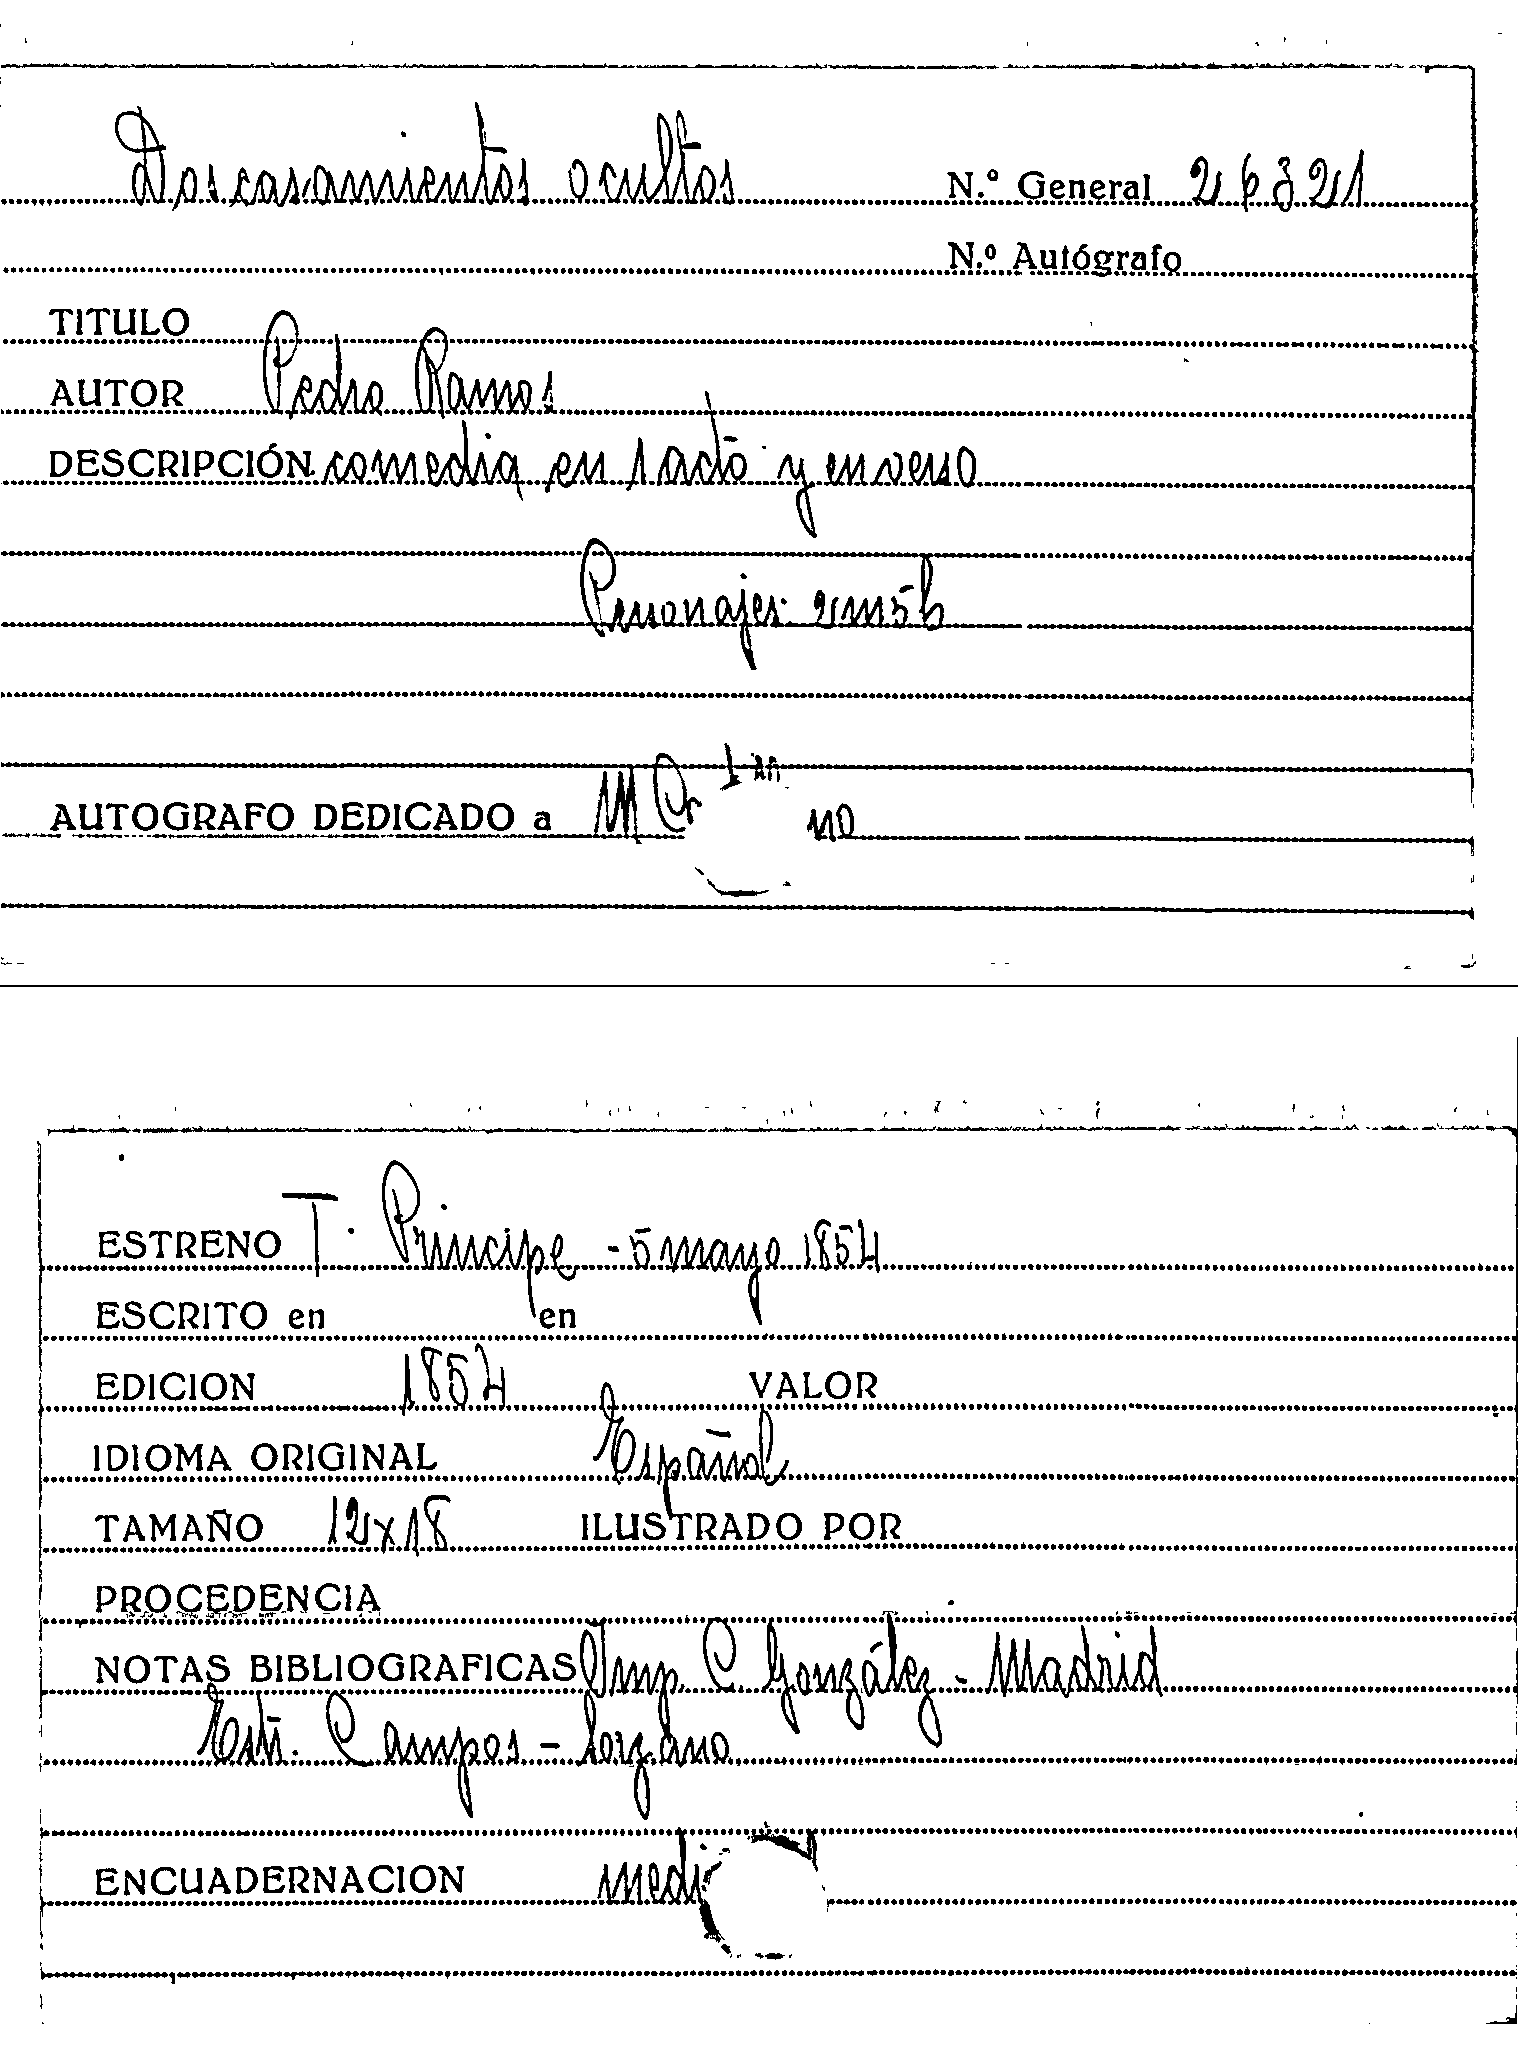 Dos casamientos ocultos N.º General 26321
N.º Autógrafo
TITULO
AUTOR Pedro Ramos
DESCRIPCIÓN comedia en 1 acto y en verso
Personajes: 2m5h
AUTOGRAFO DEDICADO a M
ESTRENO T. Principe - 5 mayo 1854
ESCRITO en en
EDICION 1854 VALOR
IDIOMA ORIGINAL Español
TAMAÑO 12x18 ILUSTRADO POR
PROCEDENCIA
NOTAS BIBLIOGRAFICAS Imp. C. González - Madrid
Campos -
ENCUADERNACION medi